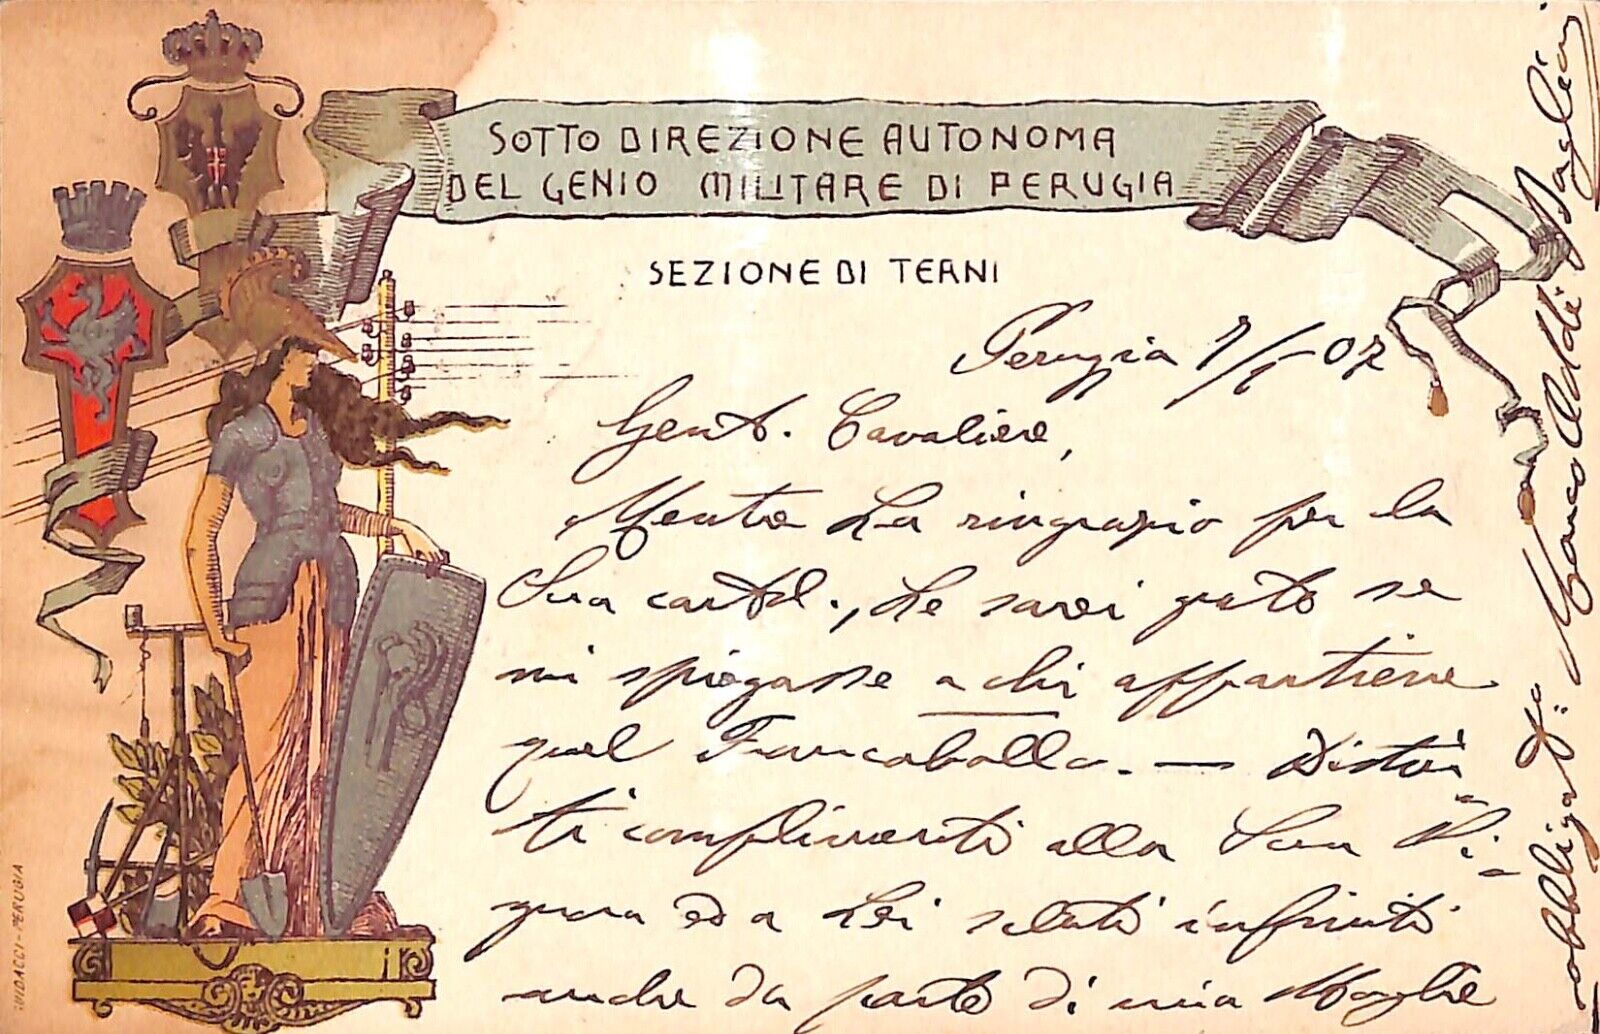 SOTTO DIREZIONE AUTONOMA
DEL GENIO MILITARE DI PERUGIA
SEZIONE DI TERNI
Perugia 1/1-07
Gent. Cavaliere,
Mentre La ringrazio per la
Sua cartol., Le sarei grato se
mi spiegasse a chi appartiene
quel Francobollo. — Distin
ti complimenti alla Sua Si-
gnora ed a Lei saluti infiniti
anche da parte di mia Moglie
obbligat.
Marco
GUIDACCI-PERUGIA